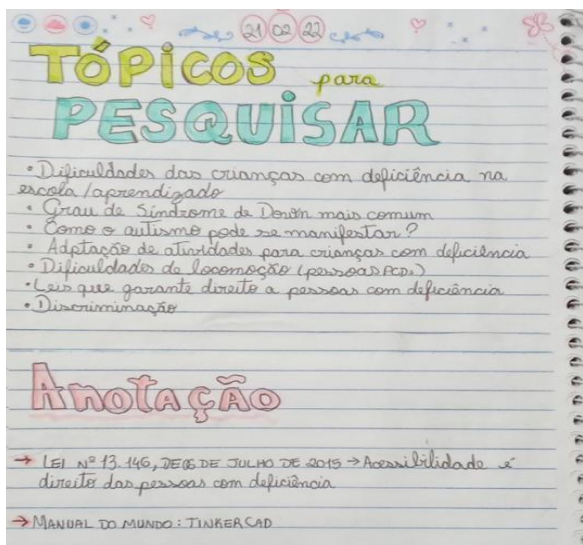 21 02 22
TÓPICOS para
PESQUISAR
• Dificuldades das crianças com deficiência na
escola/aprendizado
• Grau de Síndrome de Down mais comum
• Como o autismo pode se manifestar?
• Adptação de atividades para crianças com deficiência
• Dificuldades de locomoção (pessoas PCD.)
• Leis que garante direito a pessoas com deficiência
• Discriminação
Anotação
→ LEI Nº 13.146, DE 06 DE JULHO DE 2015 → Acessibilidade é
direito das pessoas com deficiência
→ MANUAL DO MUNDO: TINKERCAD